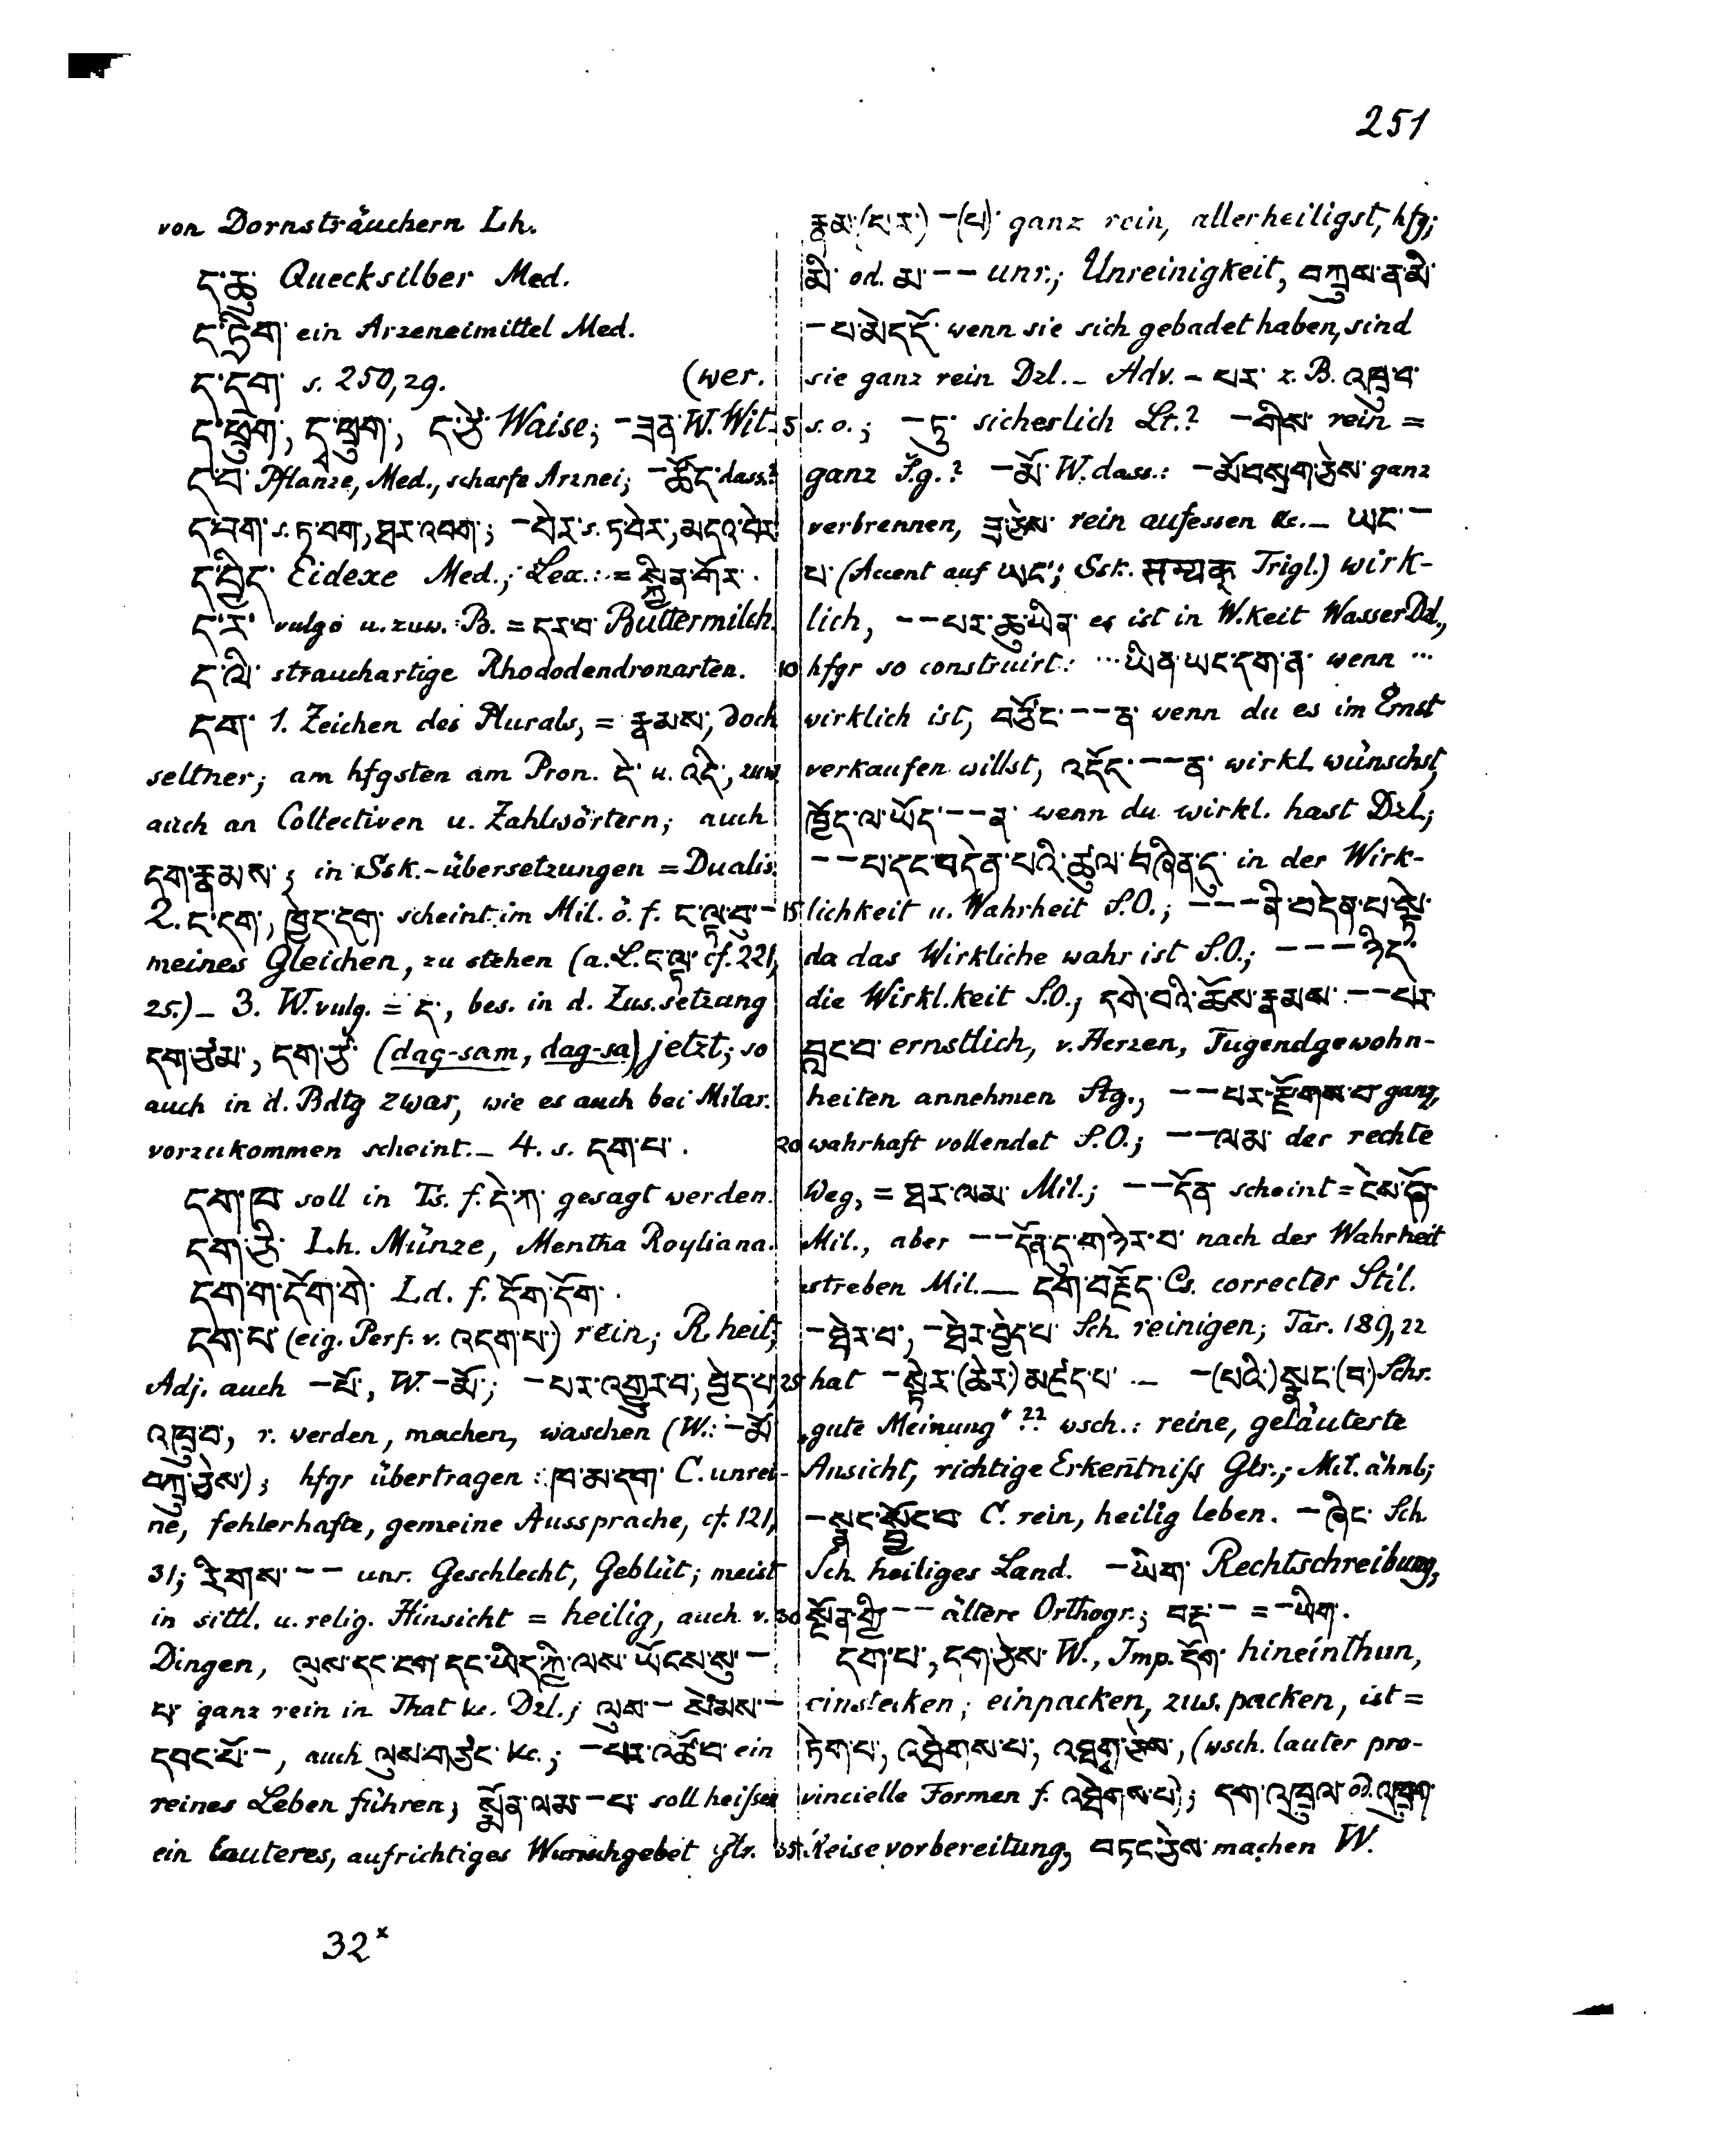 251
von Dornsträuchern Lh.
ད་ཆུ་ Quecksilber Med.
ད་ཏྲིག་ ein Arzeneimittel Med.
ད་དག་ s. 250,29. (wer.
ད་ཕྲུག་, ད་ཕྲུག་, ད་ཙེ་ Waise; – ཟན་ W. Wit-
ད་བ་ Pflanze, Med., scharfe Arznei; – ཚོད་ dass.?
ད་བེག་ s. ཏ་བག་, ཐར་འབག་; – བེར་ s. ཏ་བེར་, མདའ་བེར
ད་བྱིད་ Eidexe Med.; Lex.: = སྐྱིན་གོར་.
ད་ར་ vulgo u. zuw. B. = དར་བ་ Buttermilch.
ད་ལི་ strauchartige Rhododendronarten.
དག་ 1. Zeichen des Plurals, = རྣམས་, doch
seltner; am hfgsten am Pron. དེ་ u. འདི་, zuw.
auch an Collectiven u. Zahlwörtern; auch
དག་རྣམས་; in Ssk.-übersetzungen = Dualis.
2. ང་དག་, ཁྱེད་དག་ scheint im Mil. ö. f. ང་ལྟ་བུ་ –
meines Gleichen, zu stehen (a. L. ང་ལྟ་ cf. 221,
25.) – 3. W. vulg. = ད་, bes. in d. Zus.setzang
དག་ཙམ་, དག་ཙ་ (dag-sam, dag-sa) jetzt; so
auch in d. Bdtg zwar, wie es auch bei Milar.
vorzukommen scheint. – 4. s. དག་པ་.
དག་ཁ་ soll in Ts. f. དེ་ཀ་ gesagt werden.
དག་ཅི་ Lh. Münze, Mentha Royliana.
དག་ག་དོག་གེ་ Ld. f. དོག་དོག་.
དག་པ་ (eig. Perf. v. འདག་པ་) rein; R.heit;
Adj. auch – པོ་, W. – མོ་; – པར་འགྱུར་བ་, བྱེད་པ་,
འཁྲུ་བ་, r. werden, machen, waschen (W.: – མོ
བཀྲུ་ཅེས་); hfgr übertragen: ཁ་མ་དག་ C. unrei-
ne, fehlerhafte, gemeine Aussprache, cf. 121,
31; རིགས་ – – unr. Geschlecht, Geblüt; meist
in sittl. u. relig. Hinsicht = heilig, auch v.
Dingen, ལུས་དང་ངག་དང་ཡིད་ཀྱི་ལས་ཡོངས་སུ་ –
པ་ ganz rein in That &c. Dzl.; ལུས་ – སེམས་ –
དབང་པོ་ –, auch ལུས་གཙང་ &c.; – པར་འཚོ་བ་ ein
reines Leben führen; སྨོན་ལམ་ – པ་ soll heißen
ein lauteres, aufrichtiges Wunschgebet Gtr.
རྣམ་(པར་) – (པ)་ ganz rein, allerheiligst, hfg;
མི་ od. མ་ – – unr.; Unreinigkeit, བཀྲུས་ན་མི་
– པ་མེད་དོ་ wenn sie sich gebadet haben, sind
sie ganz rein Dzl. – Adv. – པར་ z. B. འཁྲུ་བ་
5 s. o.; – ཏུ་ sicherlich Lt.? – གིས་ rein =
ganz S.g.? – མོ་ W. dass.: – མོ་བསྲག་ཅེས་ ganz
verbrennen, ཟ་ཅེས་ rein aufessen &c. – ཡང་ –
པ་ (Accent auf ཡང་; Ssk. सम्यक् Trigl.) wirk-
lich, – – པར་ཆུ་ཡིན་ es ist in W.keit Wasser Dzl.,
10 hfgr so construirt: ... ཡིན་ཡང་དག་ན་ wenn ...
wirklich ist, བཙོང་ – – ན་ wenn du es im Ernst
verkaufen willst, འདོད་ – – ན་ wirkl. wünschst,
ཁྱོད་ལ་ཡོད་ – – ན་ wenn du wirkl. hast Dzl.;
– – པ་དང་བདེན་པའི་ཚུལ་བཞིན་དུ་ in der Wirk-
15 lichkeit u. Wahrheit S.O.; – – – ནི་བདེན་པ་སྟེ་
da das Wirkliche wahr ist S.O.; – – – ཉིད་
die Wirkl.keit S.O.; དགེ་བའི་ཆོས་རྣམས་ – – པར
བླང་བ་ ernstlich, v. Herzen, Tugendgewohn-
heiten annehmen Stg., – – པར་རྫོགས་པ་ ganz,
20 wahrhaft vollendet S.O.; – – ལམ་ der rechte
Weg, = ཐར་ལམ་ Mil.; – – དོན་ scheint = ངེས་དོན་
Mil., aber – – དོན་དུ་གཉེར་བ་ nach der Wahrheit
streben Mil. – དག་བརྗོད་ Cs. correcter Stil.
– ཐེར་བ་, – ཐེར་བྱེད་པ་ Sch. reinigen; Tar. 189,22
25 hat – སྟེར་(ཆེར་)མཛད་པ་ . – – (པའི་)སྣང་(བ་) Schr.
„gute Meinung“ ?? wsch.: reine, geläuterte
Ansicht, richtige Erkenntniß Gtr.; Mil. ähnl;
– སྣང་སྦྱོང་བ་ C. rein, heilig leben. – ཞིང་ Sch.
Sch. heiliges Land. – ཡིག་ Rechtschreibung,
30 སྔོན་གྱི་ – – ältere Orthogr.; བརྡ་ – = – ཡིག་.
དག་པ་, དག་ཅེས་ W., Imp. དོག་ hineinthun,
einstecken; einpacken, zus. packen, ist =
ཏེག་པ་, འཐེགས་པ་, འཐག་ཅེས་, (wsch. lauter pro-
vincielle Formen f. འཐེགས་པ་); དག་འཁྲུལ་ od. འཁྲུག་
35 Reisevorbereitung, བཏང་ཅེས་ machen W.
32*